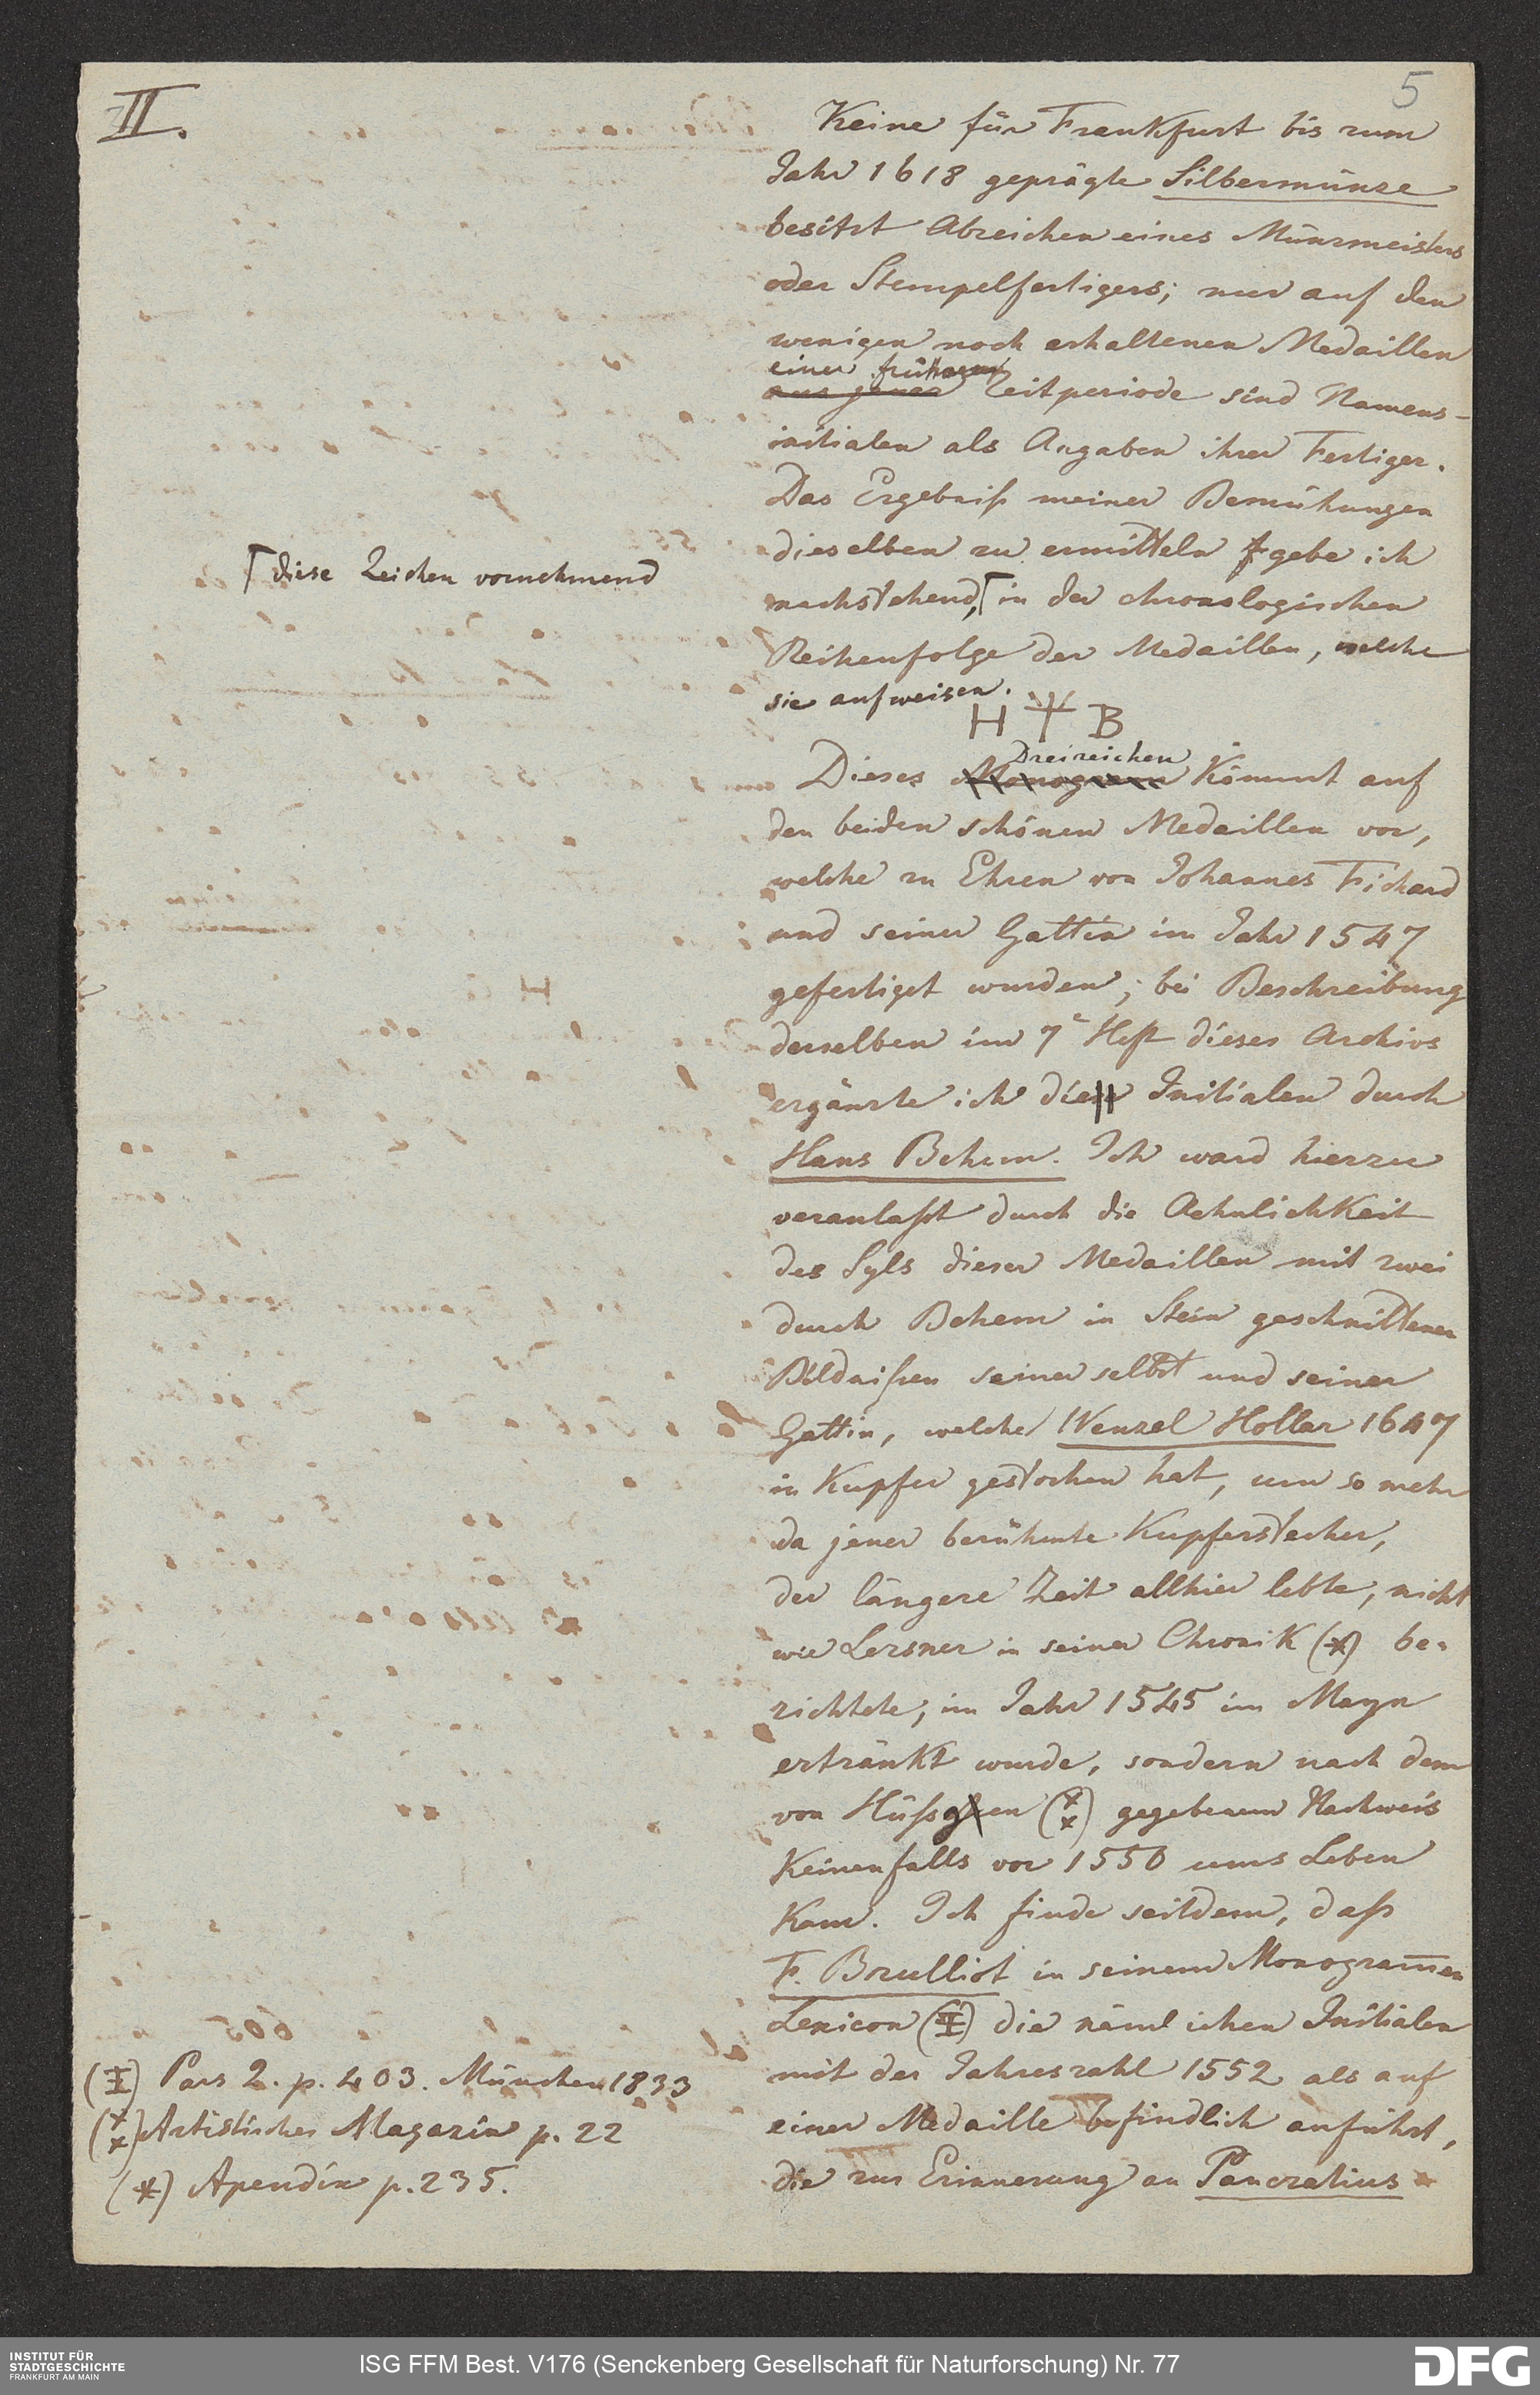 II.
5
Keine für Frankfurt bis zum
Jahr 1618 geprägte Silbermünze
besitzt Abzeichen eines Münzmeisters
oder Stempelfertigers; nur auf den
wenigen noch erhaltenen Medaillen
einer früheren
aus jener Zeitperiode sind Namens-
initialen als Angaben ihrer Fertiger.
Das Ergebniß meiner Bemühungen
dieselben zu ermitteln gebe ich
nachstehend, ⌈ in der chronologischen
⌈ diese Zeichen vornehmend
Reihenfolge der Medaillen, welche
sie aufweisen.
H B
Dreizeichen
Dieses Monogramm kömmt auf
den beiden schönen Medaillen vor,
welche zu Ehren von Johannes Fichard
und seiner Gattin im Jahr 1547
gefertiget wurden; bei Beschreibung
derselben im 7t Heft dieses Archivs
ergänzte ich die Initialen durch
Hans Behem. Ich ward hierzu
veranlaßt durch die Aehnlichkeit
des Syls dieser Medaillen mit zwei
durch Behem in Stein geschnittenen
Bildnißen seiner selbst und seiner
Gattin, welche Wenzel Hollar 1647
in Kupfer gestochen hat, um so mehr
da jener berühmte Kupferstecher,
der längere Zeit allhier lebte, nicht
wie Lersner in seiner Chronik (*) be-
richtete, im Jahr 1545 im Mayn
ertränkt wurde, sondern nach dem
von Hüßgen (**) gegebenem Nachweis
keinenfalls vor 1550 ums Leben
kam. Ich finde seitdem, daß
F. Brulliot in seinem Monogram̅en
Lexicon (‡) die nämlichen Initialen
mit der Jahreszahl 1552 als auf
einer Medaille befindlich anführt,
die zur Erinnerung an Pancratius
(‡) Pars 2. p. 403. München 1833
(**) Artistisches Magazin p. 22
(*) Apendix p. 235.
INSTITUT FÜR
STADTGESCHICHTE
FRANKFURT AM MAIN
ISG FFM Best. V176 (Senckenberg Gesellschaft für Naturforschung) Nr. 77
DFG